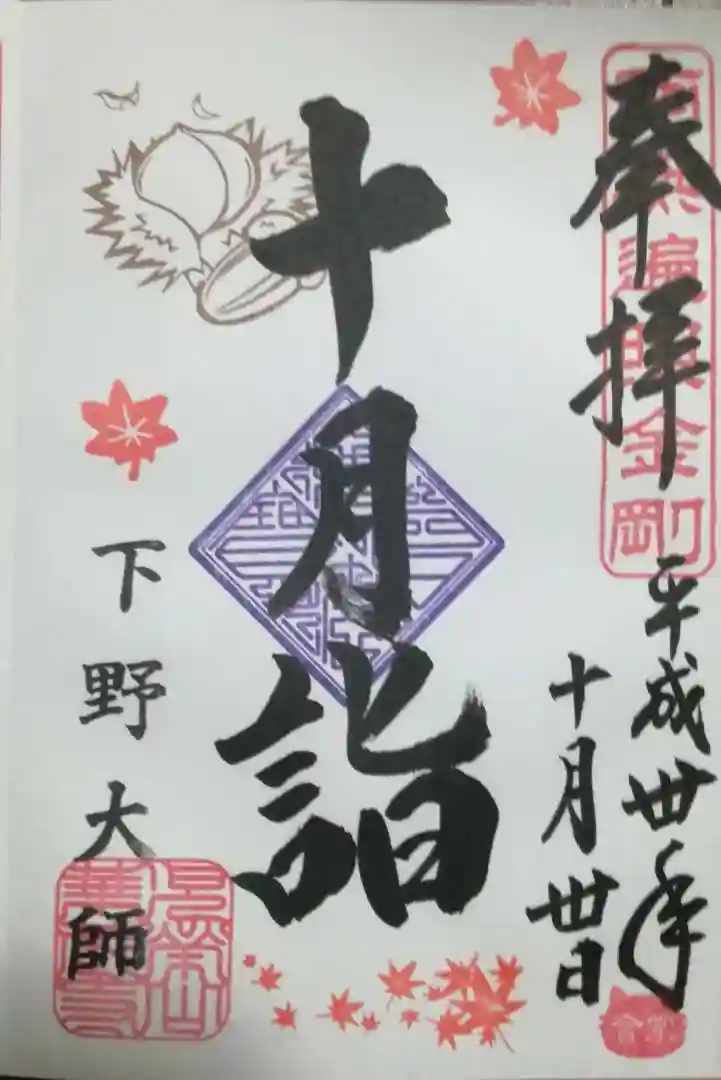 奉拝
南無遍照金剛
平成卅年
十月卅日
十月詣
下野大師